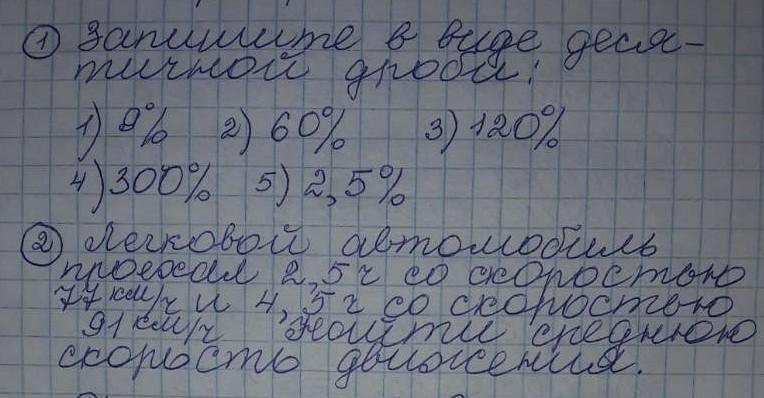 ① Запишите в виде деся-
тичной дроби:
1) 9% 2) 60% 3) 120%
4) 300% 5) 2,5%
② Легковой автомобиль
проехал 2,5 ч со скоростью
77 км/ч и 4,5 ч со скоростью
91 км/ч Найти среднюю
скорость движения.